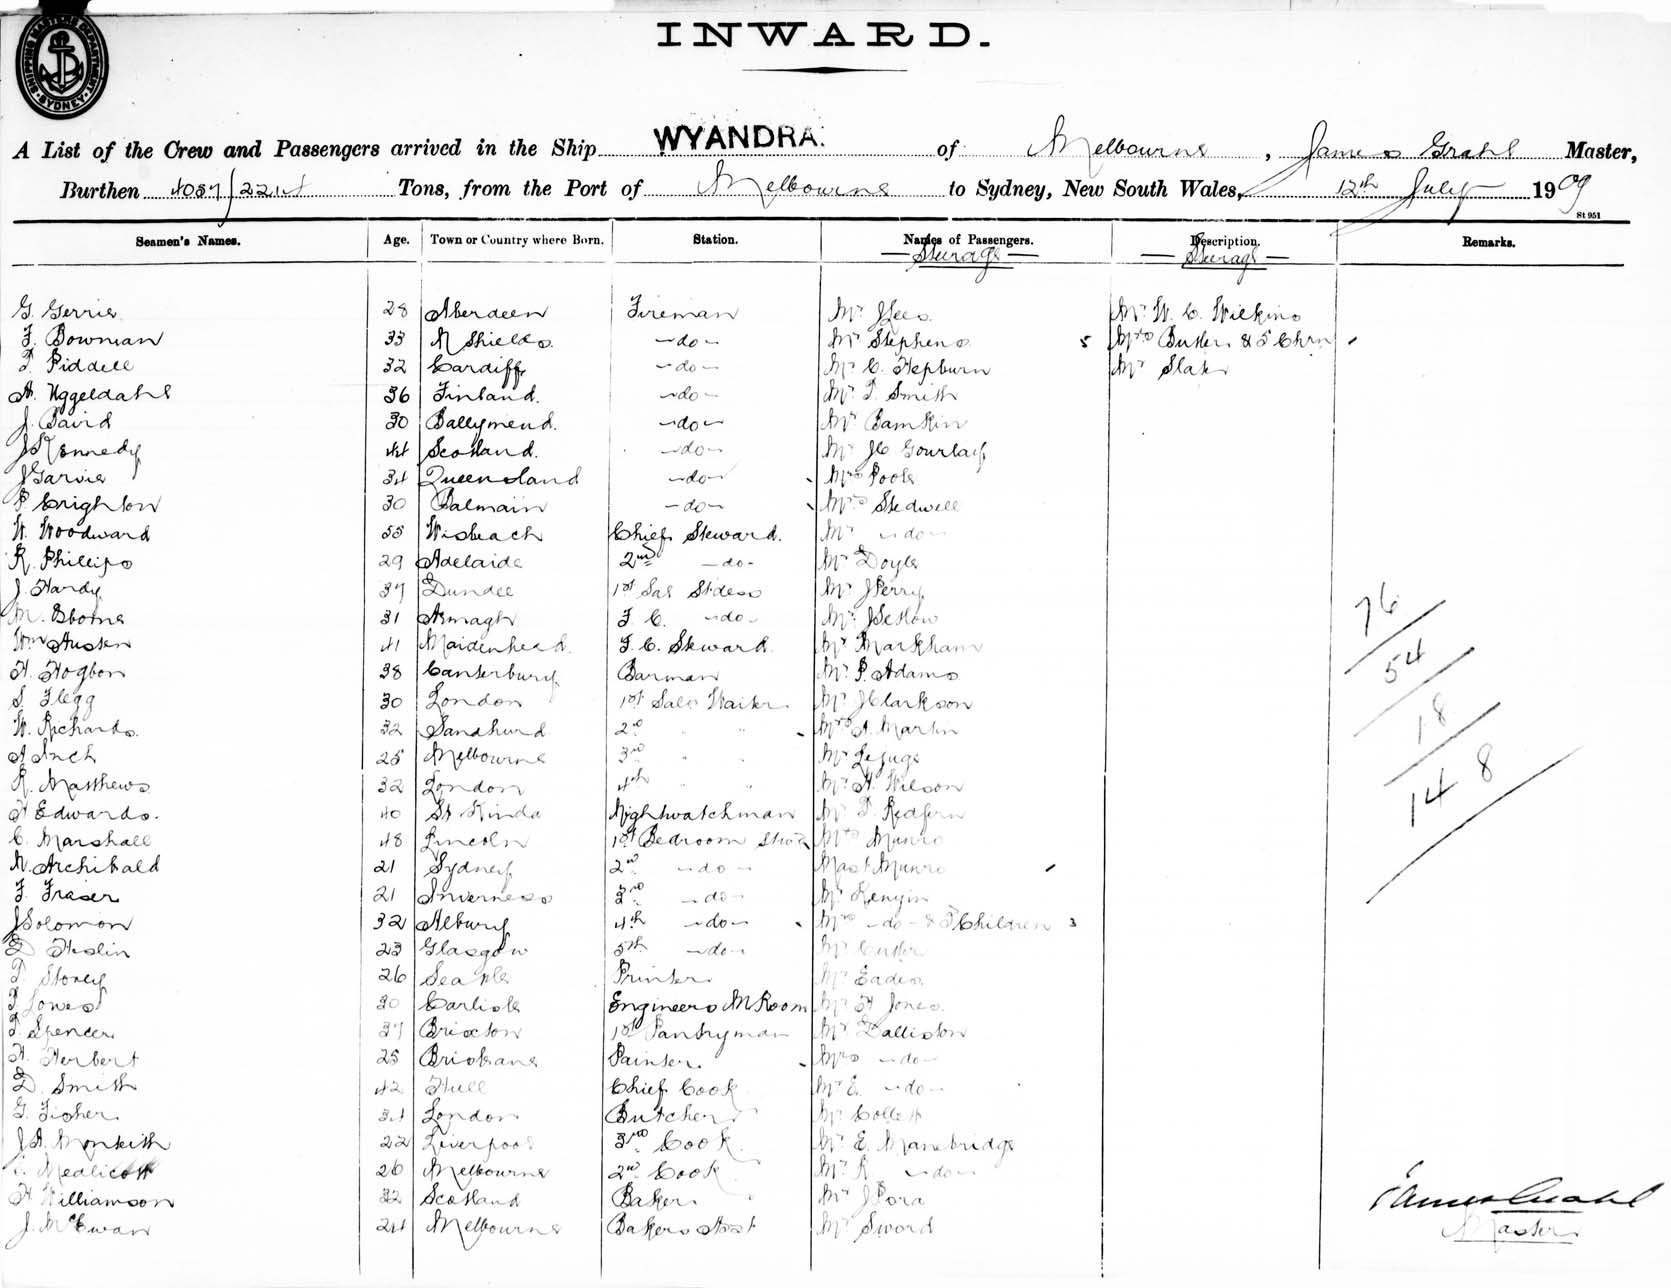 SHIPPING MASTERS DEPARTMENT SYDNEY
INWARD.
A List of the Crew and Passengers arrived in the Ship WYANDRA. of Melbourne, James Grahl Master,
Burthen 4057/2214 Tons, from the Port of Melbourne to Sydney, New South Wales, 12th July 1909
St 951
Seamen's Names. Age. Town or Country where Born. Station. Names of Passengers. Description. Remarks.
Steerage Steerage
G. Gerrie 28 Aberdeen Fireman Mr J Lees Mr W. C. Wilkins
F. Bowman 33 N Shields -do- Mr Stephens 5 Mrs Butler & 5 Chrn
T. Piddell 32 Cardiff -do- Mr C. Hepburn Mr Slater
A. Uggeldahl 36 Finland. -do- Mr T. Smith
J. Baird 30 Ballymena. -do- Mr Bamkin
J Kennedy 44 Scotland. -do- Mr JC Gourlay
J Garvie 34 Queensland -do- Mrs Poole
P. Crighton 30 Balmain -do- Mrs Stedwell
W. Woodward 55 Wisbeach Chief Steward. Mr -do-
R. Phillips 29 Adelaide 2nd -do- Mr Doyle
J. Hardy 37 Dundee 1st Sal Stdess Mr J Perry
M. Osborne 31 Armagh F. C. -do- Mr J
Wm Austen 41 Maidenhead. F. C. Steward. Mr Markham
H. Hogbon 38 Canterbury Barman Mr P. Adams
S. Flegg 30 London 1st Saln Waiter Mr J Clarkson
W. Richards. 32 Sandhurst 2nd " " Mrs A. Martin
A Inch 25 Melbourne 3rd " " Mr
R. Matthews 32 London 4th " " Mr H. Wilson
H Edwards. 40 St Kilda Nightwatchman Mr T. Redfern
C. Marshall 48 Lincoln 1st Bedroom Stwd Mrs Munro
N. Archibald 21 Sydney 2nd -do- Mast Munro
F. Fraser 21 Inverness 3rd -do- Mr Kenyin
J Solomon 32 Albury 4th -do- Mrs -do- & 3 Children 3
D Heslin 23 Glasgow 5th -do- Mr
T Storey 26 Printer Mr Eades
T Jowes 30 Carlisle Engineers M Room Mr H Jones.
T. Spencer 37 Brixton 1st Pantryman Mr Dalliston
H. Herbert 25 Brisbane Painter. Mrs -do-
D. Smith 42 Hull Chief Cook Mr E. -do-
G. Fisher 34 London Butcher Mr Collett
J A. Monkith 22 Liverpool 3rd Cook Mr E. Manebridge
Medlicott 26 Melbourne 2nd Cook Mr R -do-
H Williamson 32 Scotland Baker Mr J Pora
J. McEwan 24 Melbourne Bakers Asst Mr Sword
76
54
18
148
James Grahl
Master